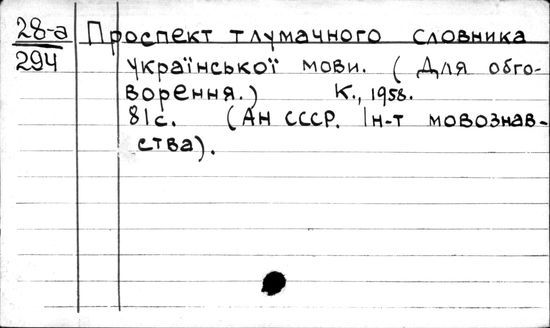 28-а Проспект тлумачного словника
294 української мови. (Для обго-
ворення.) К., 1958.
81с. (АН СССР. Ін-т мовознав-
ства).